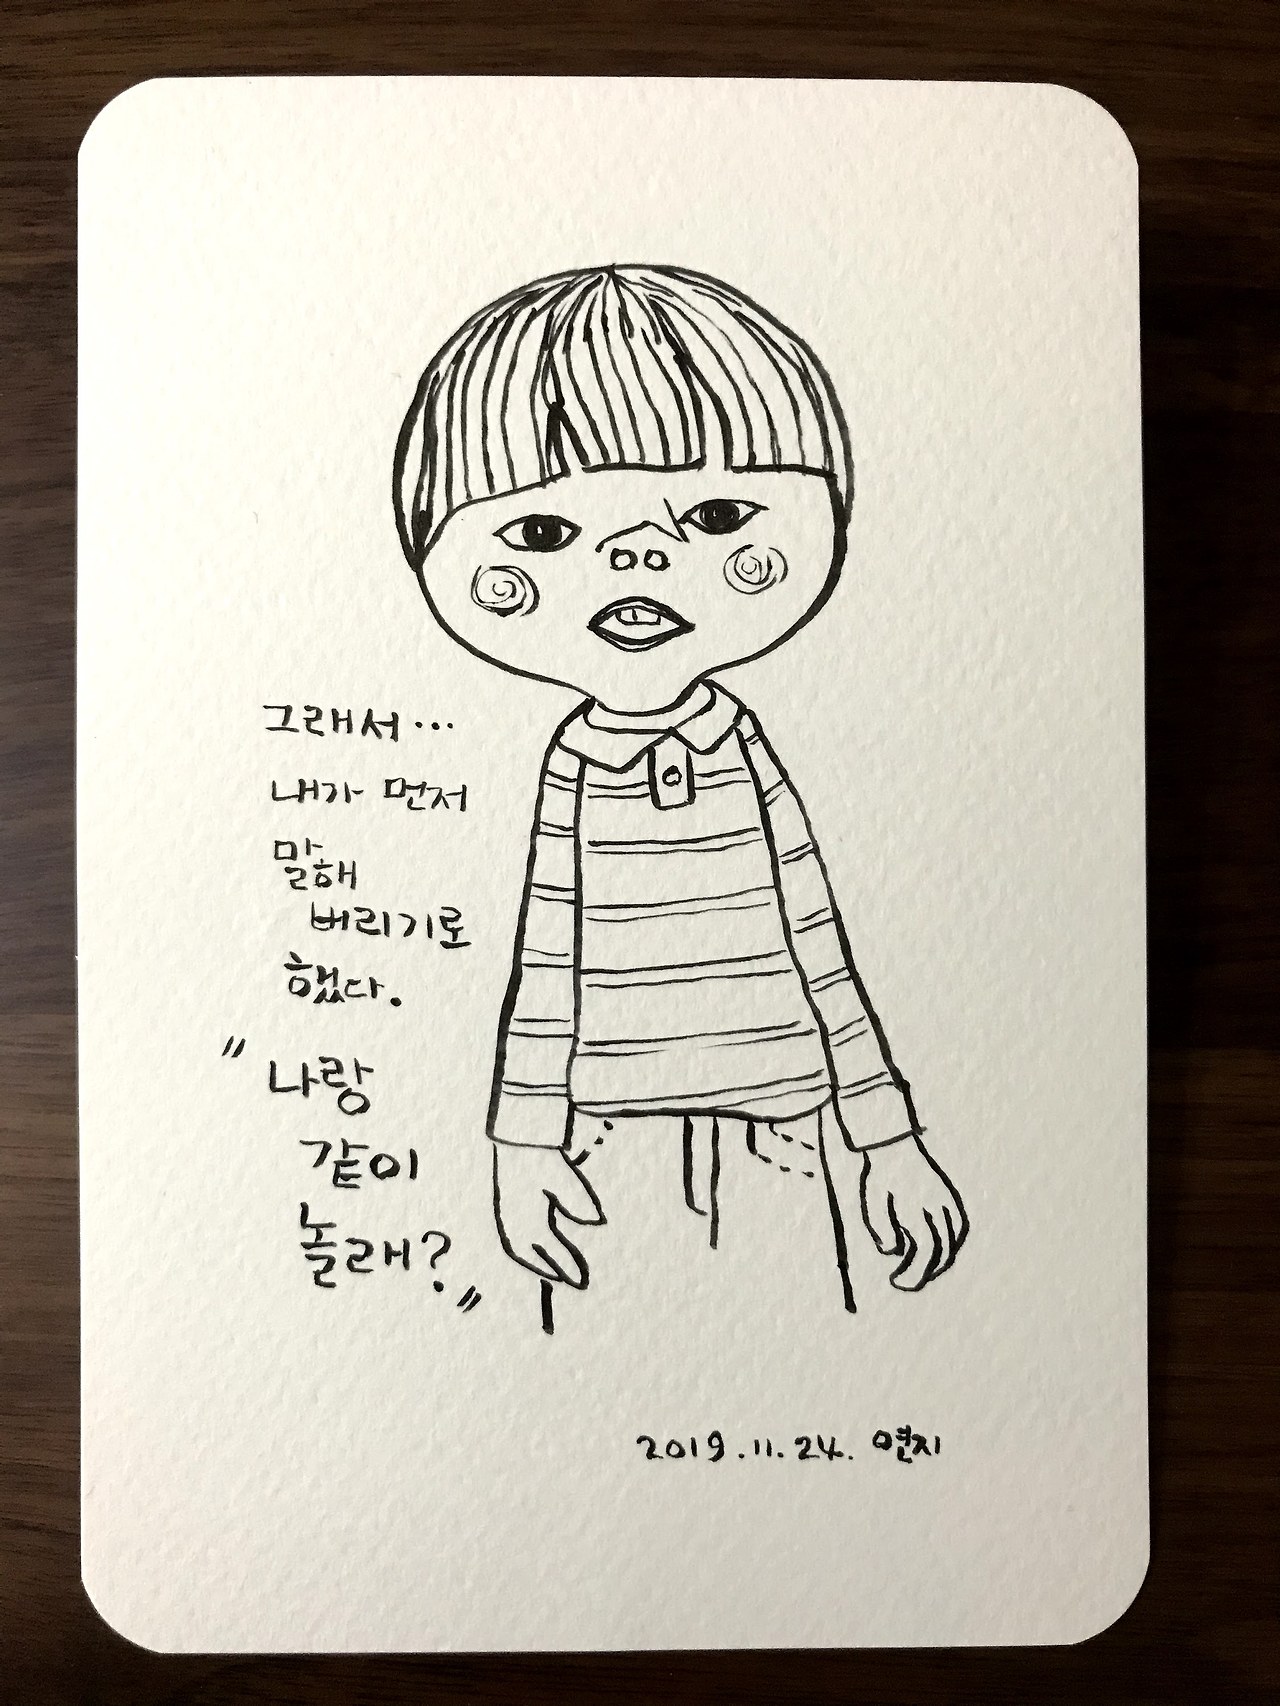 그래서...
내가 먼저
말해
버리기로
했다.
"나랑
같이
놀래?"
2019.11.24. 연지